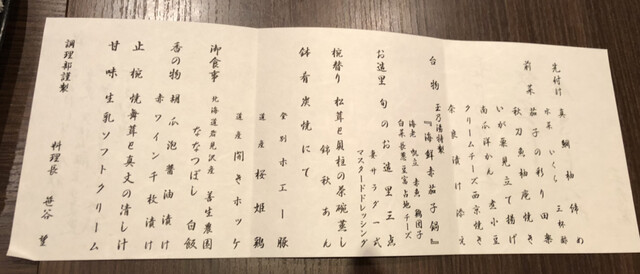 先付け 真鯛柚〆め
水菜 いくら 三杯酢
前菜 茄子の彩り田楽
秋刀魚柚庵焼き
いが栗見立て揚げ
南瓜羊かん 煮小豆
クリームチーズ西京焼き
奈良漬け添え
台物 玉乃湯特製
『海鮮赤茄子鍋』
海老 帆立 赤魚 鶏団子
白菜 長葱 豆富 占地 チーズ
お造里 旬のお造里三点
妻サラダ一式
マスタードドレッシング
椀替り 松茸と貝柱の茶碗蒸し
錦秋あん
鉢肴 炭焼にて
登別ホエー豚
道産 桜姫鶏
道産 開きホッケ
御食事 北海道岩見沢産 善生農園
ななつぼし 白飯
香の物 胡瓜泡醤油漬け
赤ワイン千枚漬け
止椀 焼舞茸と真丈の清し汁
甘味 生乳ソフトクリーム
料理長 笹谷 望
調理部謹製